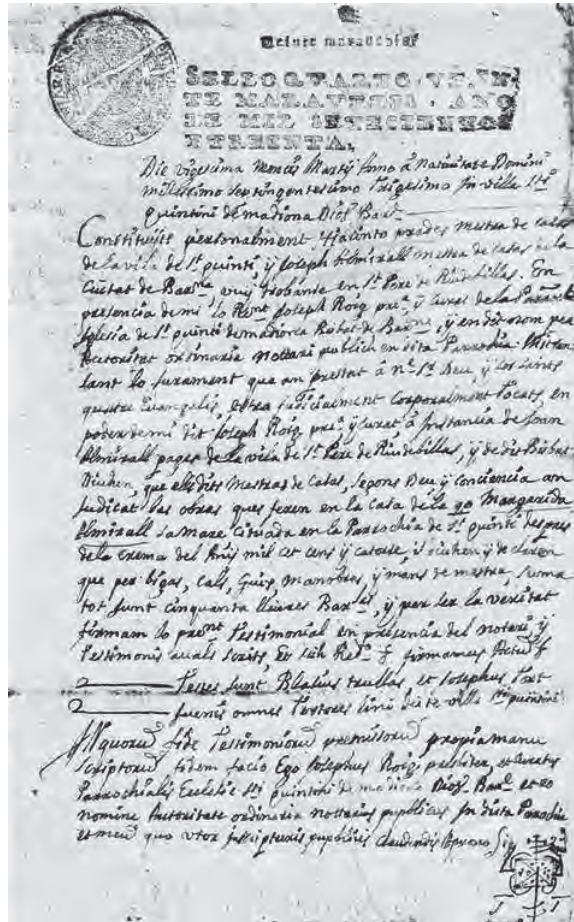 Veinte maravedis
SELLO QVARTO, VEIN-
TE MARAVEDIS, AÑO
DE MIL SETECIENTOS
Y TREINTA,
Die vigesima mensis Martij Anno â Nativitate Domini
millessimo septingentesimo trigesimo In villa Sti
quintini de madiona Dios Bar
Constituits personalment Hiacinto prades mestra de casas
de la vila de St quinti, ÿ Joseph Almirall mestra de casas de la
Ciutat de Barna vuy trobantse en St Pere de Riudebillas. En
presencia de mi lo Rent Joseph Roig pre ÿ curat de la
Iglesia de St quinti de madiona Bisbat de Barna, ÿ en dit nom per
Autoritat ordinaria nottari publich en dita Parrochia
lant lo jurament que an prestat â Ne Sr Deu ÿ los sants
quatre Evangelis, corporalment tocats, en
poder de mi dit Joseph Roig pre ÿ curat â Instancia de Joan
Almirall pages de la vila de St Pere de Riudebillas, ÿ de dit Bisbat
Diuhen, que ells dits mestras de casas, segons Deu ÿ conciencia an
Judicat las obras que feren en la casa de la qo Margarida
Almirall sa mare cituada en la Parrochia de St quinti despres
de la crema del Añis mil cet cens ÿ catorse, ÿ diuhen ÿ declaren
que per bigas, cals, Guix, manobras, ÿ mans de mestra, suma
tot junt cinquanta lliures Barses, ÿ per ser la veritat
firmam lo prent Testimonial en presencia del notari ÿ
Testimonis avals scrits,
Testes sunt Blasius trullas et Josephus Font
omnes villa Sti quintini
In quorum fide Testimoniorum premissorum propia manu
scriptorum fidem facio Ego Josephus Roig prebiter, et Curatus
Parrochialis Ecclesie Sti quintini de madiona Dios Bare et eo
nomine Autoritate ordinaria nottarius puplicus In dicta Parrochia
et meu quo vtor in scripturis puplicis claudendis Apono Sig